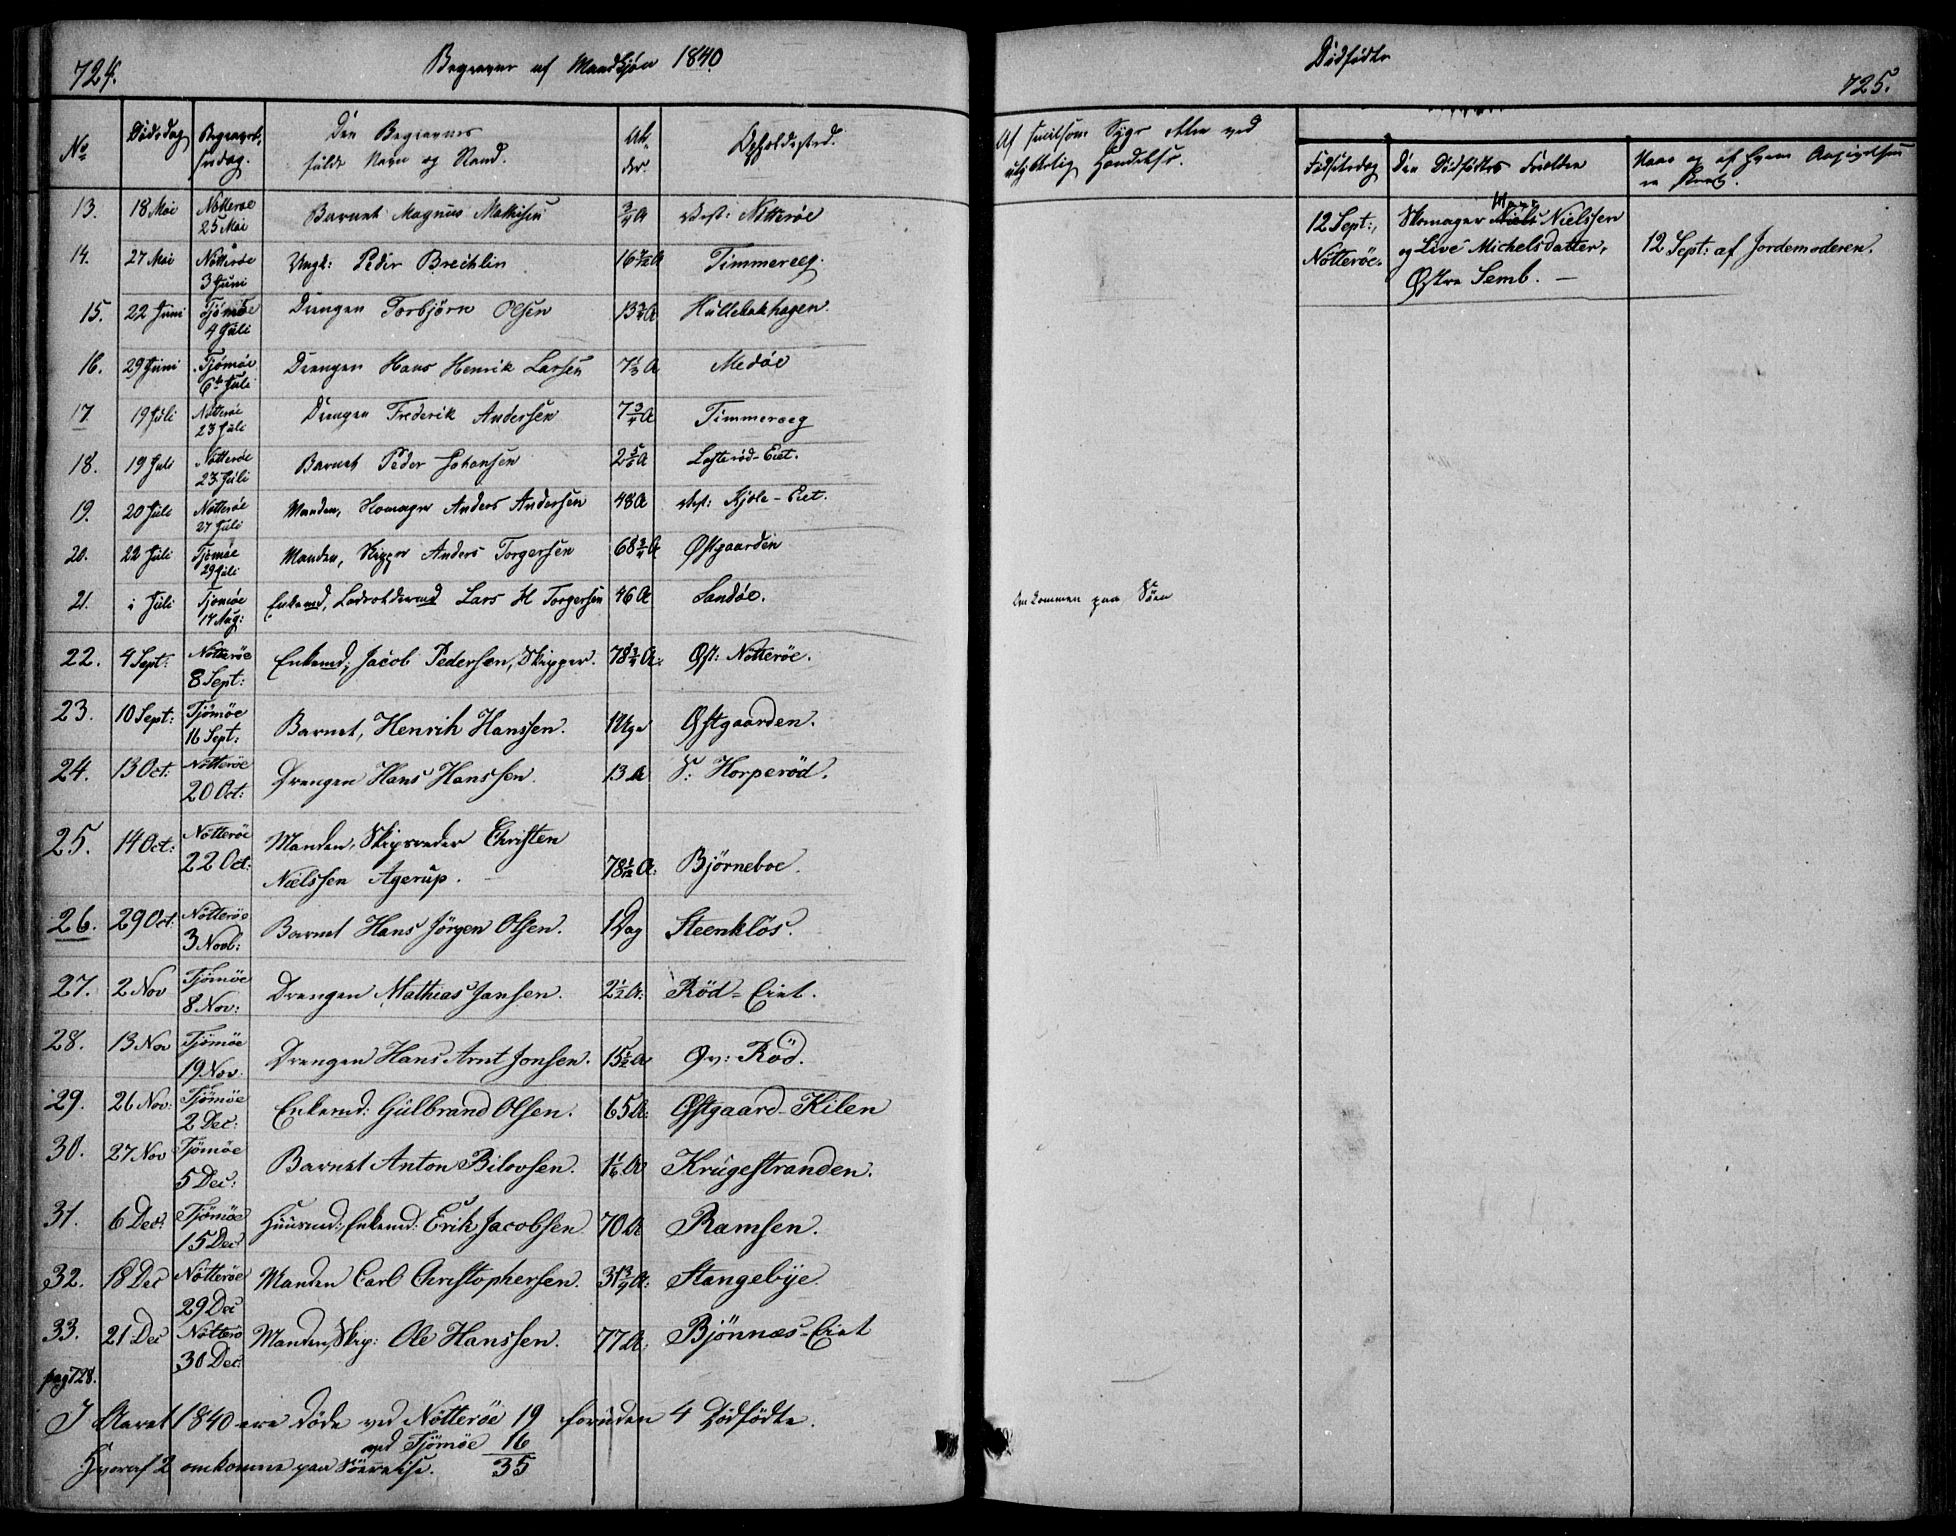 724.
Begravne af Mandkjøn 1840.
No
Dødsdag
Begravel-
sesdag.
Den Begravnes
fulde Navn og Stand.
Al-
der.
Opholdssted.
13. 18 Mai Nötteröe 25 Mai Barnet Magnus Mathisen 3/4 A Vest: Nötteröe
14. 27 Mai Nötteröe 3 Juni Ungk: Peder Brechlin 16 A Timmereeg.
15. 22 Juni Tjömöe 4 Juli Drengen Torbjörn Olsen 13 3/4 A Hüllebakhagen.
16. 29 Juni Tjömöe 6te Juli Drengen Hans Henrik Larsen 7 1/3 A Medöe
17 19 Juli Nötteröe 23 Juli Drengen Frederik Andersen 7 3/4 A Timmereeg
18. 19 Juli Nötteröe 23 Juli Barnet Peder Johansen 2 5/6 A Lofteröd-Eiet.
19. 20 Juli Nötteröe 27 Juli Manden, Anders Andersen 48 A Vest: Kjöle-Eiet.
20. 22 Juli Tjömöe 29 Juli Manden, Skipper Anders Torgersen 68 3/4 A Østgaarden
21. i Juli Tjömöe 17 Aug: Enkemd, Lars H Torgersen 46 A Sandöe.
22. 4 Sept: Nötteröe 8 Sept: Enkemd; Jacob Pedersen, Skipper. 78 3/4 A: Øst: Nötteröe.
23. 10 Sept: Tjömöe 16 Sept: Barnet, Henrik Hanssen. 1 Uge Østgaarden.
24. 13 Oct: Nötteröe 20 Oct: Drengen Hans Hanssen. 13 A S: Horperöd.
25. 14 Oct: Nötteröe 22 Oct: Manden, Skipsreder Christen
Nielssen Agerup. 78 1/12 A: Björneboe.
26. 29 Oct: Nötteröe 3 Novb: Barnet Hans Jörgen Olsen. 1 Dag Steenklös.
27. 2 Nov Tjömöe 8 Nov: Drengen Mathias Jansen. 2 1/2 A: Röd-Eiet.
28. 13 Nov Tjömöe 19 Nov. Drengen Hans Arnt Jonsen. 15 1/2 A Øv: Röd.
29. 26 Nov: Tjömöe 2 Dec: Enkemd: Gülbrand Olsen. 65 A: Østgaard-Kilen
30. 27 Nov Tjömöe 5 Dec: Barnet Anton Bilovsen. 1 1/6 A Krügestranden.
31. 6 Dec: Tjömöe 15 Dec: Huusmd: Enkemd: Erik Jacobsen 70 A Ramsen.
32. 18 Dec Nötteröe 29 Dec Manden Carl Christophersen. 31 3/4 A: Stangebÿe.
33. 21 Dec Nötterö 30 Dec: Manden, Skip: Ole Hanssen. 77 A: Bjönnæs-Eiet
pag 728.
I Aaret 1840 ere døde ved Nötteröe 19 foruden 4 Dødfödte.
ved Tjömöe 16
Hvoraf 2 omkomne paa Söereise. 35
Dødfødte
725.
Af hvilken Syge eller ved
ulykkelig Hændelse.
Födselsdag
Den Dödfödtes Forældre
Naar og af hvem Angivelsen
er skeet.
Omkommen paa Söen
Hans
12 Sept:, Skomager Niels Nielssen
Nötteröe. og Live Michelsdatter, 12 Sept: af Jordemoderen.
Østre Semb. —